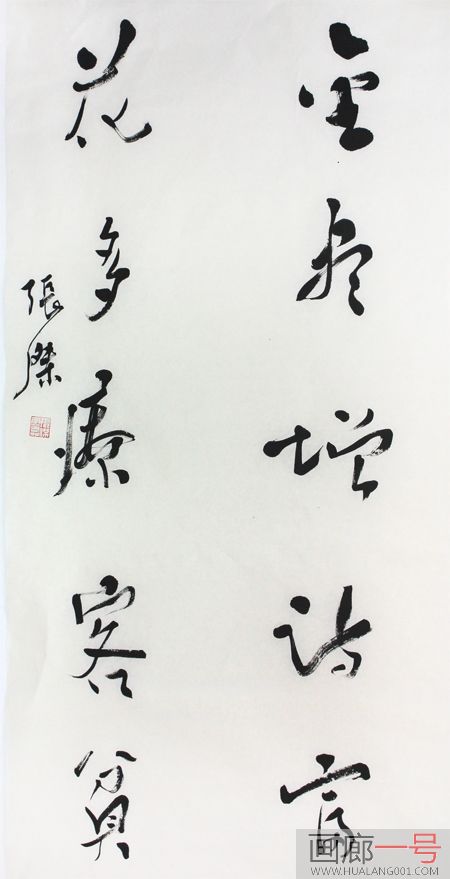 增詩富
花多療客貧
張傑
画廊一号
WWW.HUALANG001.COM